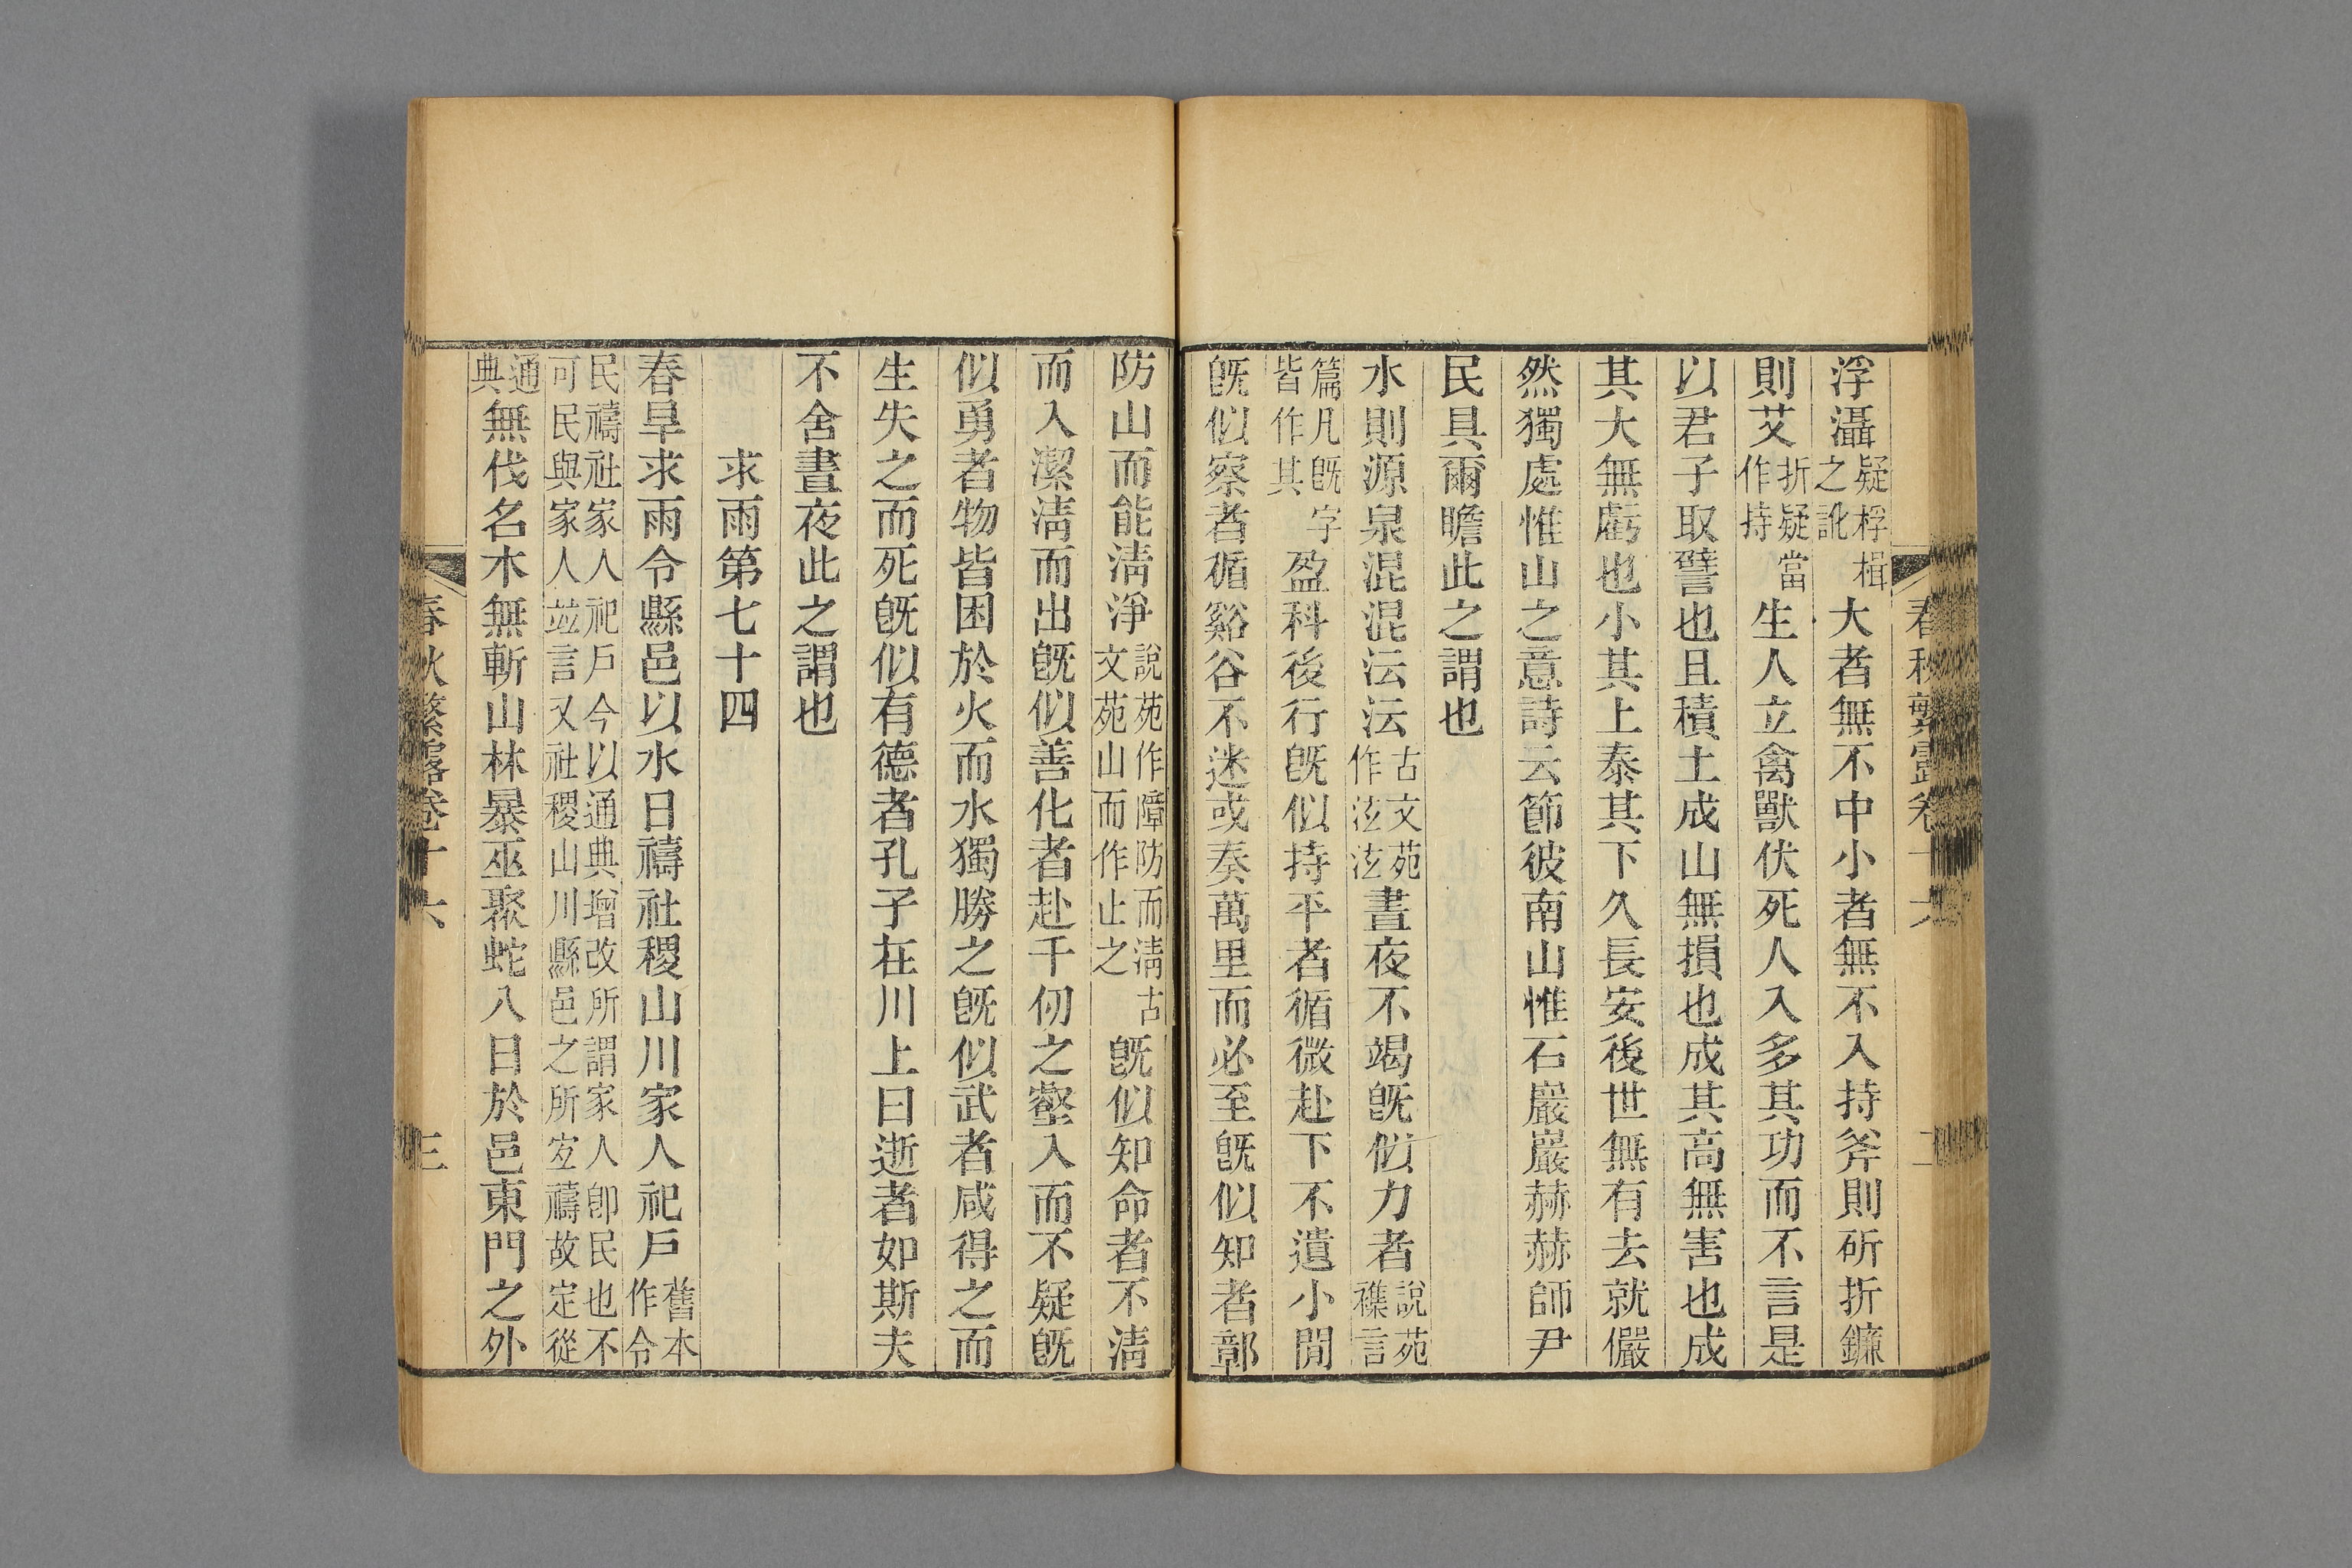 春秋繁露卷十六 二
浮灄疑桴楫之訛大者無不中小者無不入持斧則斫折鐮
則艾折疑當作持生人立禽獸伏死人入多其功而不言是
以君子取譬也且積土成山無損也成其高無害也成
其大無虧也小其上泰其下久長安後世無有去就儼
然獨處惟山之意詩云節彼南山惟石巖巖赫赫師尹
民具爾瞻此之謂也
水則源泉混混沄沄古文苑作泫泫晝夜不竭旣似力者說苑襍言
篇凡旣字皆作其盈科後行旣似持平者循微赴下不遺小閒
旣似察者循谿谷不迷或奏萬里而必至旣似知者鄣
防山而能淸淨說苑作障防而淸古文苑山而作止之旣似知命者不淸
而入潔淸而出旣似善化者赴千仞之壑入而不疑旣
似勇者物皆困於火而水獨勝之旣似武者咸得之而
生失之而死旣似有德者孔子在川上曰逝者如斯夫
不舍晝夜此之謂也
求雨第七十四
春旱求雨令縣邑以水日禱社稷山川家人祀戸舊本作令
民禱社家人祀戸今以通典增改所謂家人卽民也不可民與家人竝言又社稷山川縣邑之所宐禱故定從
通典無伐名木無斬山林暴巫聚蛇八日於邑東門之外
春秋繁露卷十六 三